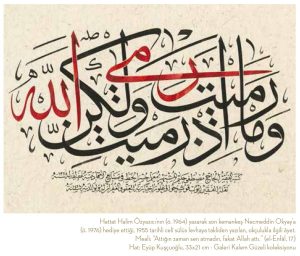 وما رميت إذ رميت ولكن الله رمى
Hattat Halim Özyazıcı'nın (ö. 1964) yazarak son kemankeş Necmeddin Okyay'a
(ö. 1976) hediye ettiği, 1955 tarihli celî sülüs levhaya taklîden yazılan, okçulukla ilgili âyet.
Meali: "Attığın zaman sen atmadın, fakat Allah attı." (el-Enfâl, 17)
Hat: Eyüp Kuşçuoğlu, 33x21 cm · Galeri Kalem Güzeli koleksiyonu